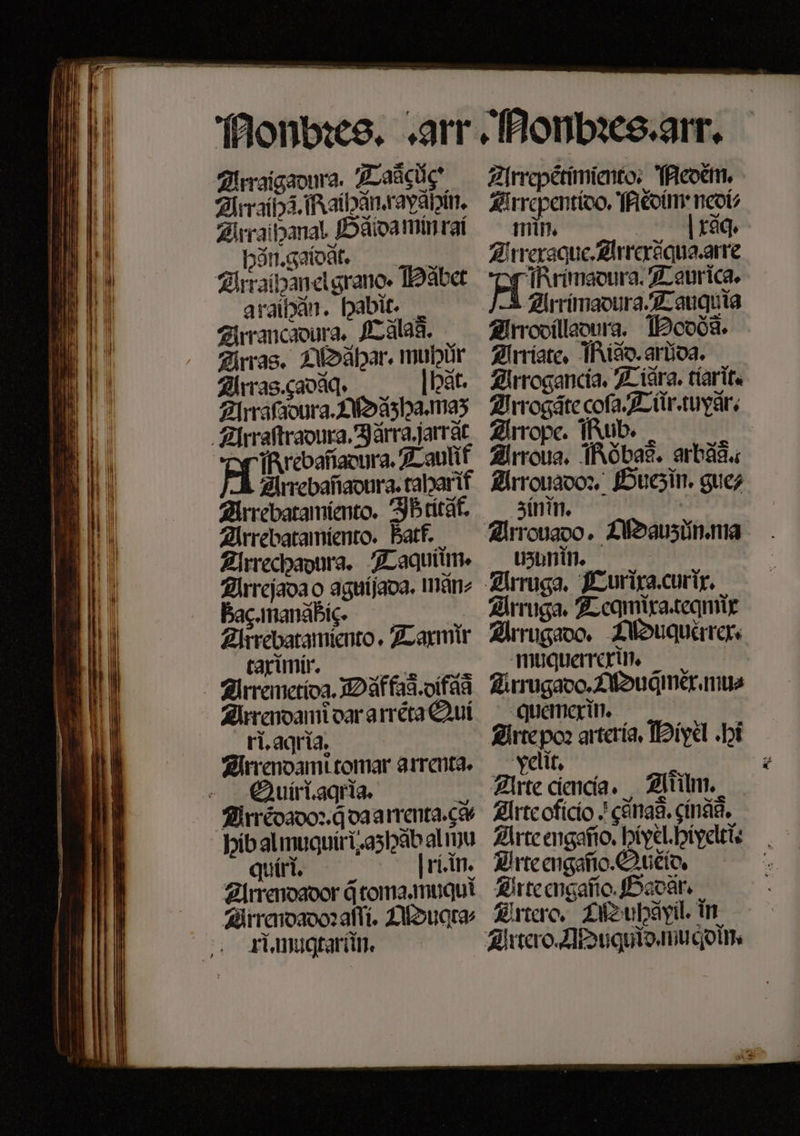 Nonbres. .arr.
Arraigadura. Taâçûç
Arraihá. Raihán.rayâhin.
Arraihanal. Hâidamin raí
hân.gaidât.
Arraihan el grano. Hâbet
araihân. habit.
Arrancadura. Câlaâ.
Arras. Mâhar. muhûr
Arras.çadâq. [hât.
Arrasadura. Mâsha.maz
Arrastradura. Jârra.jarrât
Arrebañadura. Taulif
Arrebañadura. taharif
Arrebatamiento. Jhtitâf.
Arrebatamiento. hatf.
Arrechadura. Taquiîm.
Arrejada o aguijada. mân-
haç.manâhiç.
Arrebatamiento. Taxmir
taximír.
Arremetida. Dâffaâ.difââ
Arrendami dar a rréta Quí
ri.aqria.
Arrendami tomar arrenta.
Quiri.aqria.
Arrédador.q̃ da arrenta.çâ
hib al muquiri.azhâb al mu
quíri. [ri.in.
Arrendador q̃ toma.muquí
Arrendador assi. Muqta-
ri.muqtariîn.
Nonbres.arr.
Arrepétimiento. Nedêm.
Arrepentido. Nédim nedi-
min. [xâq.
Arrexaque. Arrexâqua.arre
Arrimadura. Taurica.
Arrimadura. Tauquia
Arrodilladura. Hodôâ.
Arriate. Riâd.artida.
Arrogancia. Tiâra. tiarit.
Arrogâte cosa. Tiîr.tuyâr.
Arrope. Rub.
Arroua. Rôbaâ. arbââ.
Arrouador. Guezin. gue-
zinín.
Arrouado. Mauzûn.ma
uzunín.
Arruga. Curixa.curix.
Arruga. Teqmixa.teqmix
Arrugado. Muquérrex.
muquerrexin.
Arrugado. Muqmêx.mu-
quemexin.
Arte por artería. Hiyèl .hi
yelit.
Arte ciencia. Aîilm.
Arte oficio. çânaâ. çinââ.
Arte engaño. hiyèl.hiyelti-
Arte engaño. Quéid.
Arte engaño. Gadâr.
Artero. Muhâyil. in
Artero. Muquid.muqdin.